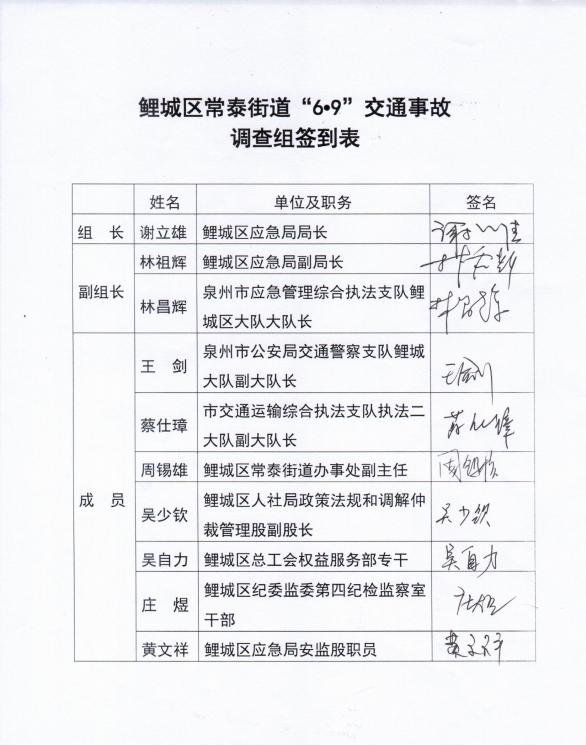 鲤城区常泰街道“6•9”交通事故
调查组签到表
姓名 单位及职务 签名
组 长 谢立雄 鲤城区应急局局长 谢立雄
副组长
林祖辉 鲤城区应急局副局长
林昌辉 泉州市应急管理综合执法支队鲤
城区大队大队长
成 员
王 剑 泉州市公安局交通警察支队鲤城
大队副大队长 王剑
蔡仕璋 市交通运输综合执法支队执法二
大队副大队长 蔡仕璋
周锡雄 鲤城区常泰街道办事处副主任
吴少钦 鲤城区人社局政策法规和调解仲
裁管理股副股长 吴少钦
吴自力 鲤城区总工会权益服务部专干 吴自力
庄 煜 鲤城区纪委监委第四纪检监察室
干部 庄煜
黄文祥 鲤城区应急局安监股职员 黄文祥